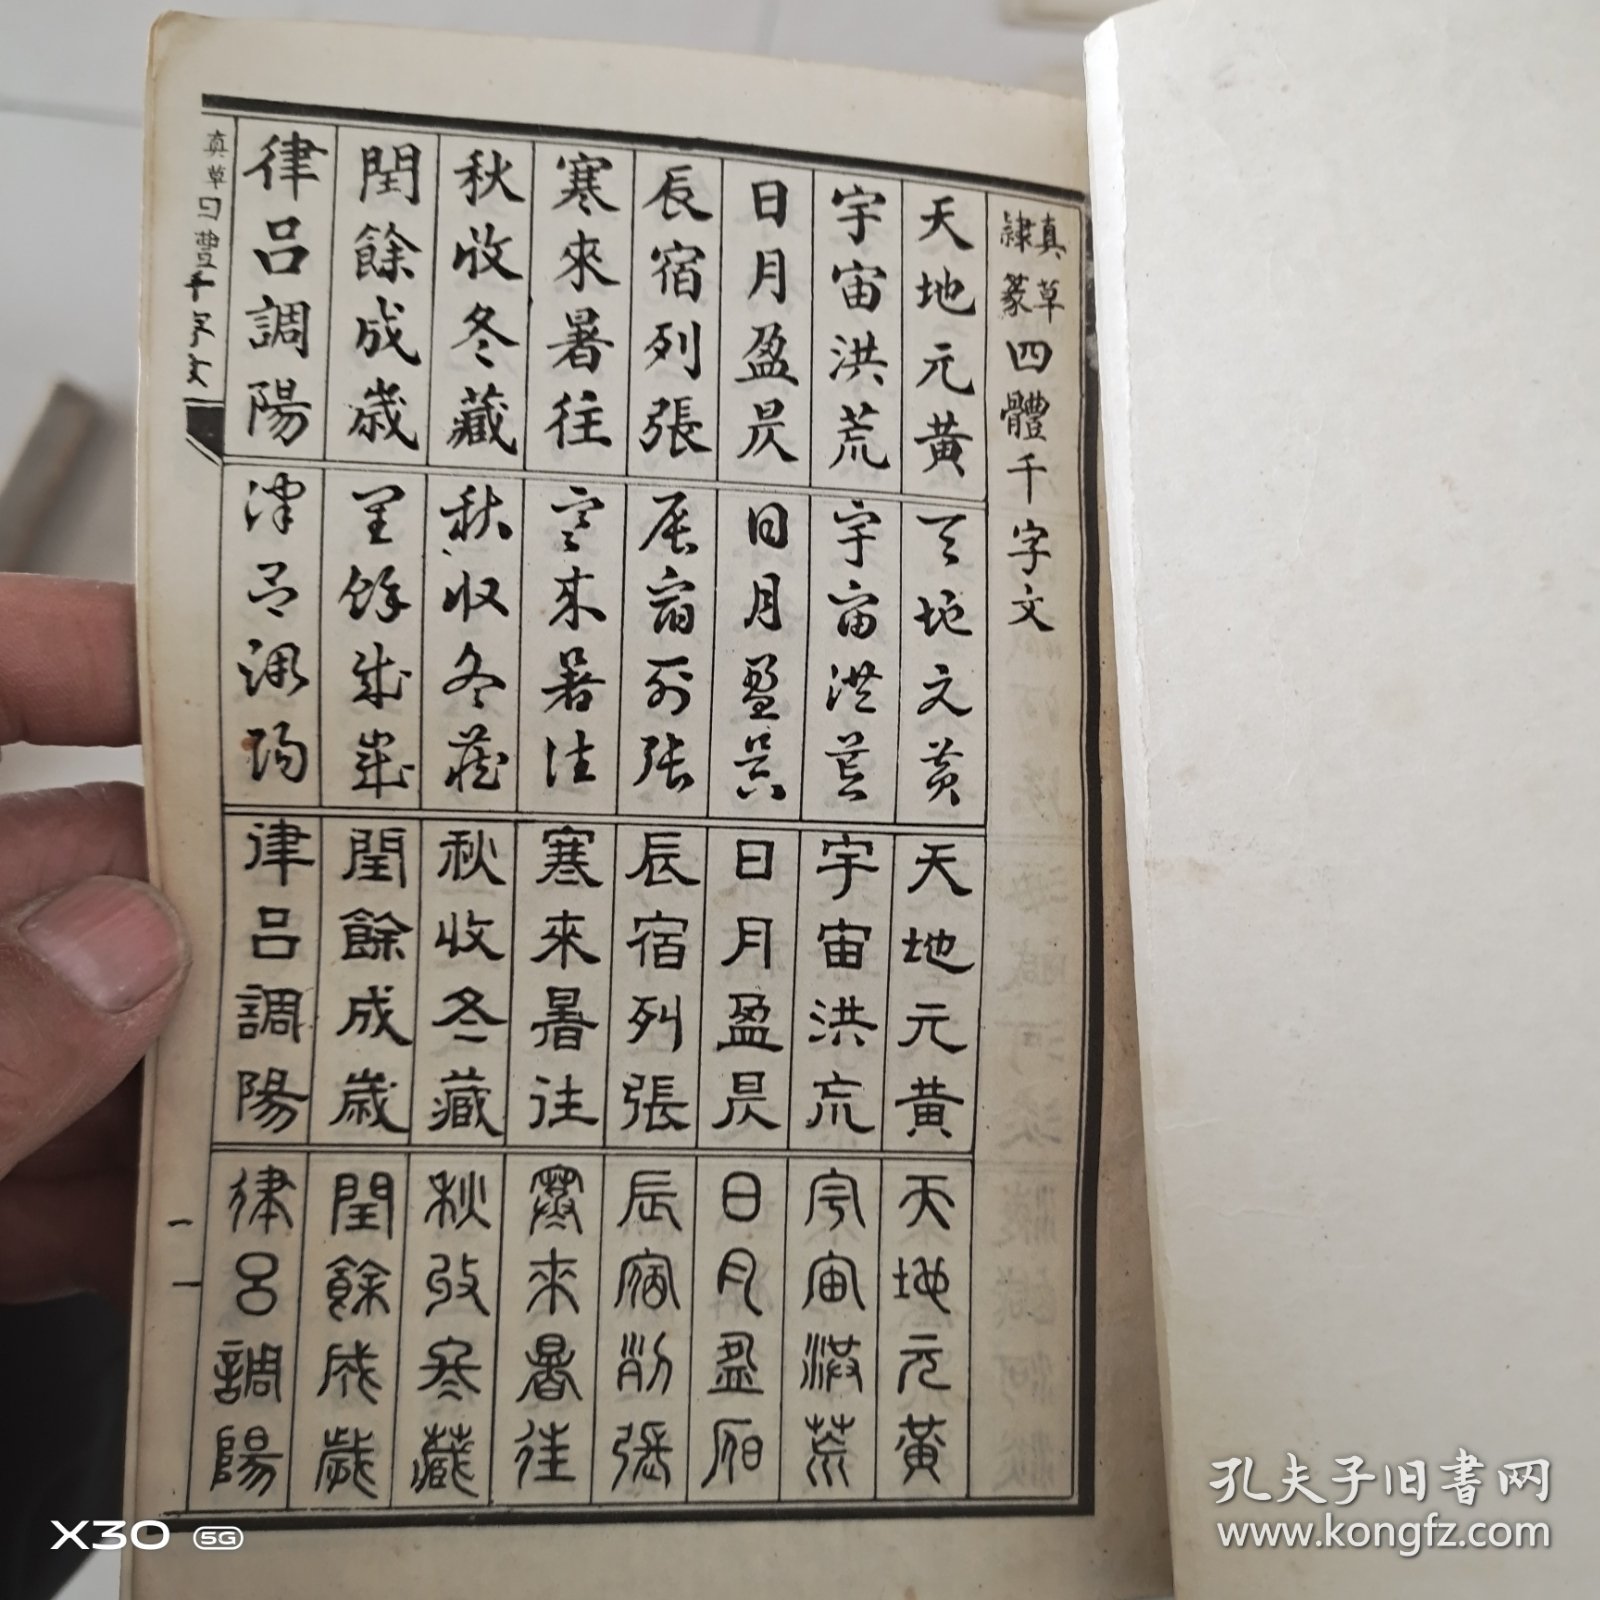 真草
隸篆
四體千字文
天地元黃
宇宙洪荒
日月盈昃
辰宿列張
寒來暑往
秋收冬藏
閏餘成歲
律呂調陽
天地元黃
宇宙洪荒
日月盈昃
辰宿列張
寒來暑往
秋收冬藏
閏餘成歲
律呂調陽
天地元黃
宇宙洪荒
日月盈昃
辰宿列張
寒來暑往
秋收冬藏
閏餘成歲
律呂調陽
天地元黃
宇宙洪荒
日月盈昃
辰宿列張
寒來暑往
秋收冬藏
閏餘成歲
律呂調陽
真草
千字文
一
一
孔夫子旧书网
www.kongfz.com
X30 5G